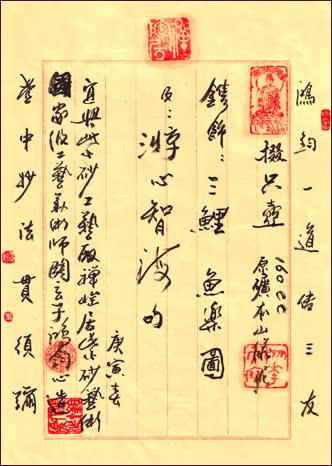 鴻鈞一道三友
掇只壺 1600cc 原礦本山
鐫飾：三鯉魚樂圖
曰：淨心智波
庚寅春
宜興紫砂工藝廠禅居紫砂藝術
國家級工藝美術師玄子鴻鈞心造
壺中妙法貫須彌